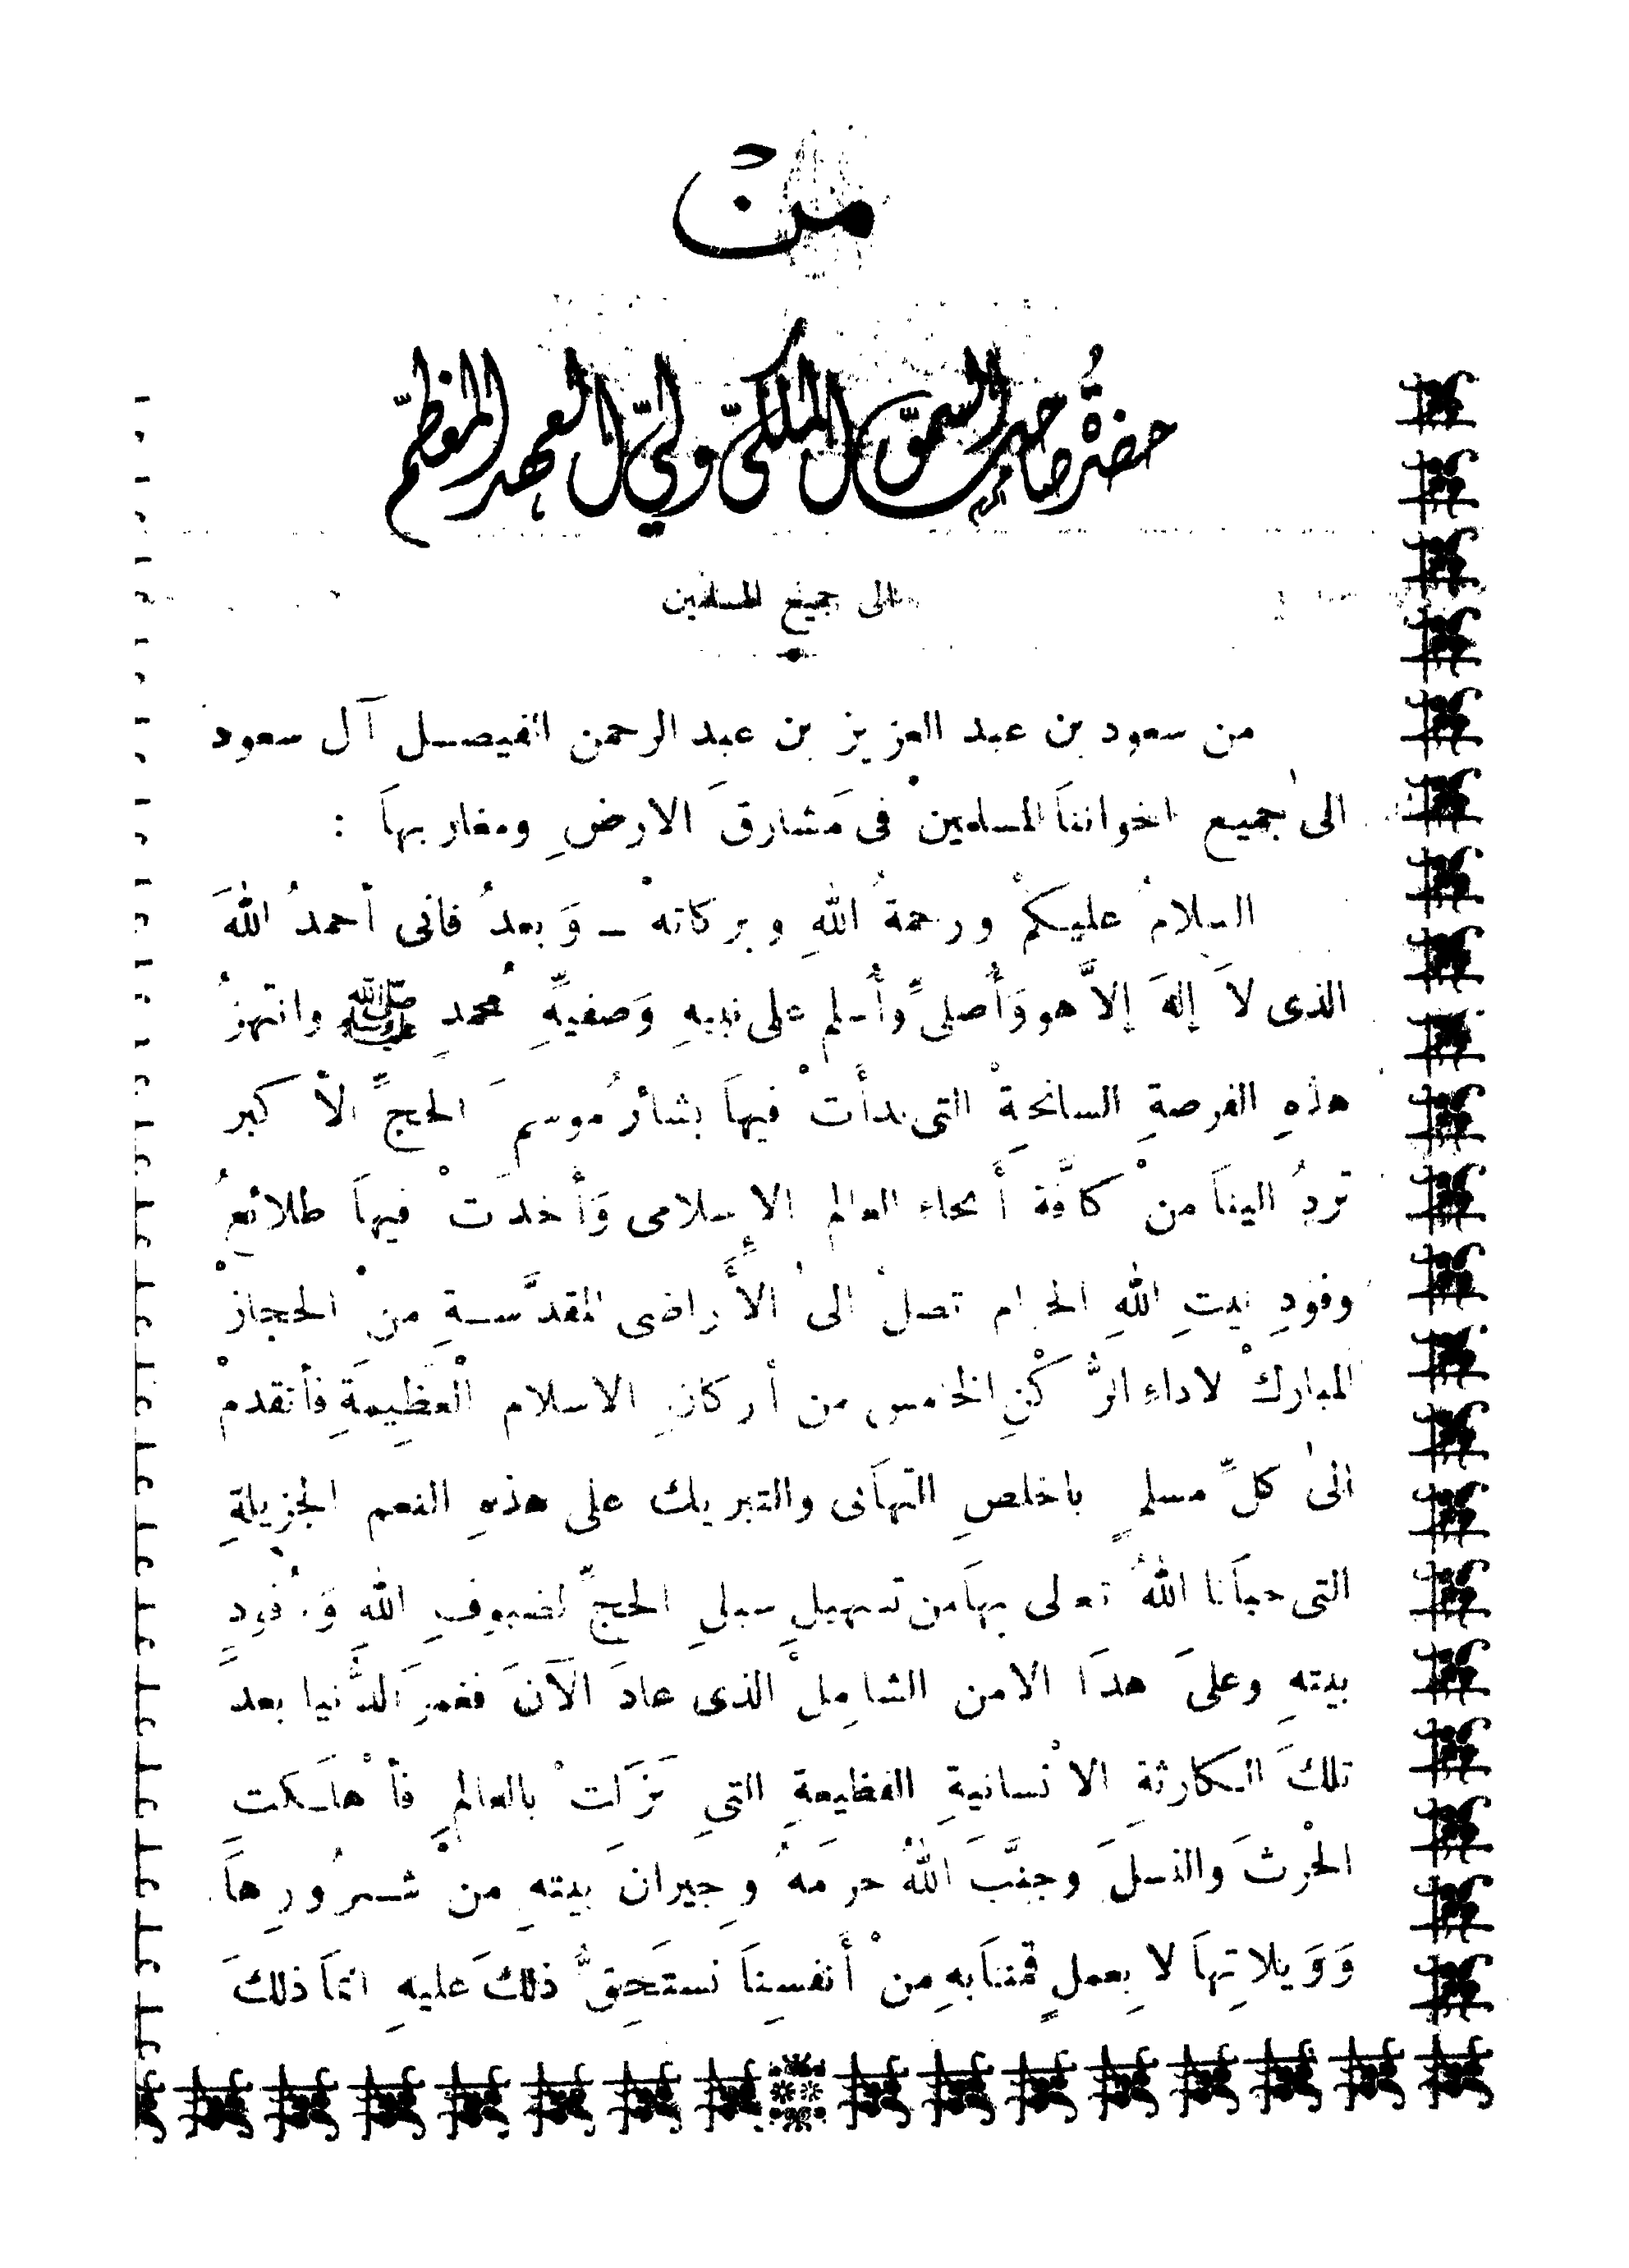 من
حضرة صاحب السمو الملكي ولي العهد المعظم
الى جميع المسلمين
من سعود بن عبد العزيز بن عبد الرحمن الفيصل آل سعود
الى جميع اخواننا المسلمين فى مشارق الارض ومغاربها :
السلام عليكم ورحمة الله وبركاته ـ وبعد فانى أحمد الله
الذى لا إله إلا هو وأصلى وأسلم على نبيه وصفيه محمد ﷺ وانتهز
هذه الفرصة السانحة التى بدأت فيها بشائر موسم الحج الأكبر
ترد الينا من كافة أنحاء العالم الإسلامى وأخذت فيها طلائع
وفود بيت الله الحرام تصل الى الأراضى المقدسة من الحجاز
المبارك لاداء الركن الخامس من أركان الاسلام العظيمة فأتقدم
الى كل مسلم باخلص التهانى والتبريك على هذه النعم الجزيلة
التى حبانا الله تعالى بها من تسهيل سبل الحج لضيوف الله ووفود
بيته وعلى هذا الامن الشامل الذى عاد الآن فغمر الدنيا بعد
تلك الكارثة الانسانية الفظيعة التى نزلت بالعالم فأهلكت
الحرث والنسل وجنب الله حرمه وجيران بيته من شرورها
وويلاتها لا بعمل قمنا به من أنفسنا نستحق ذلك عليه انما ذلك